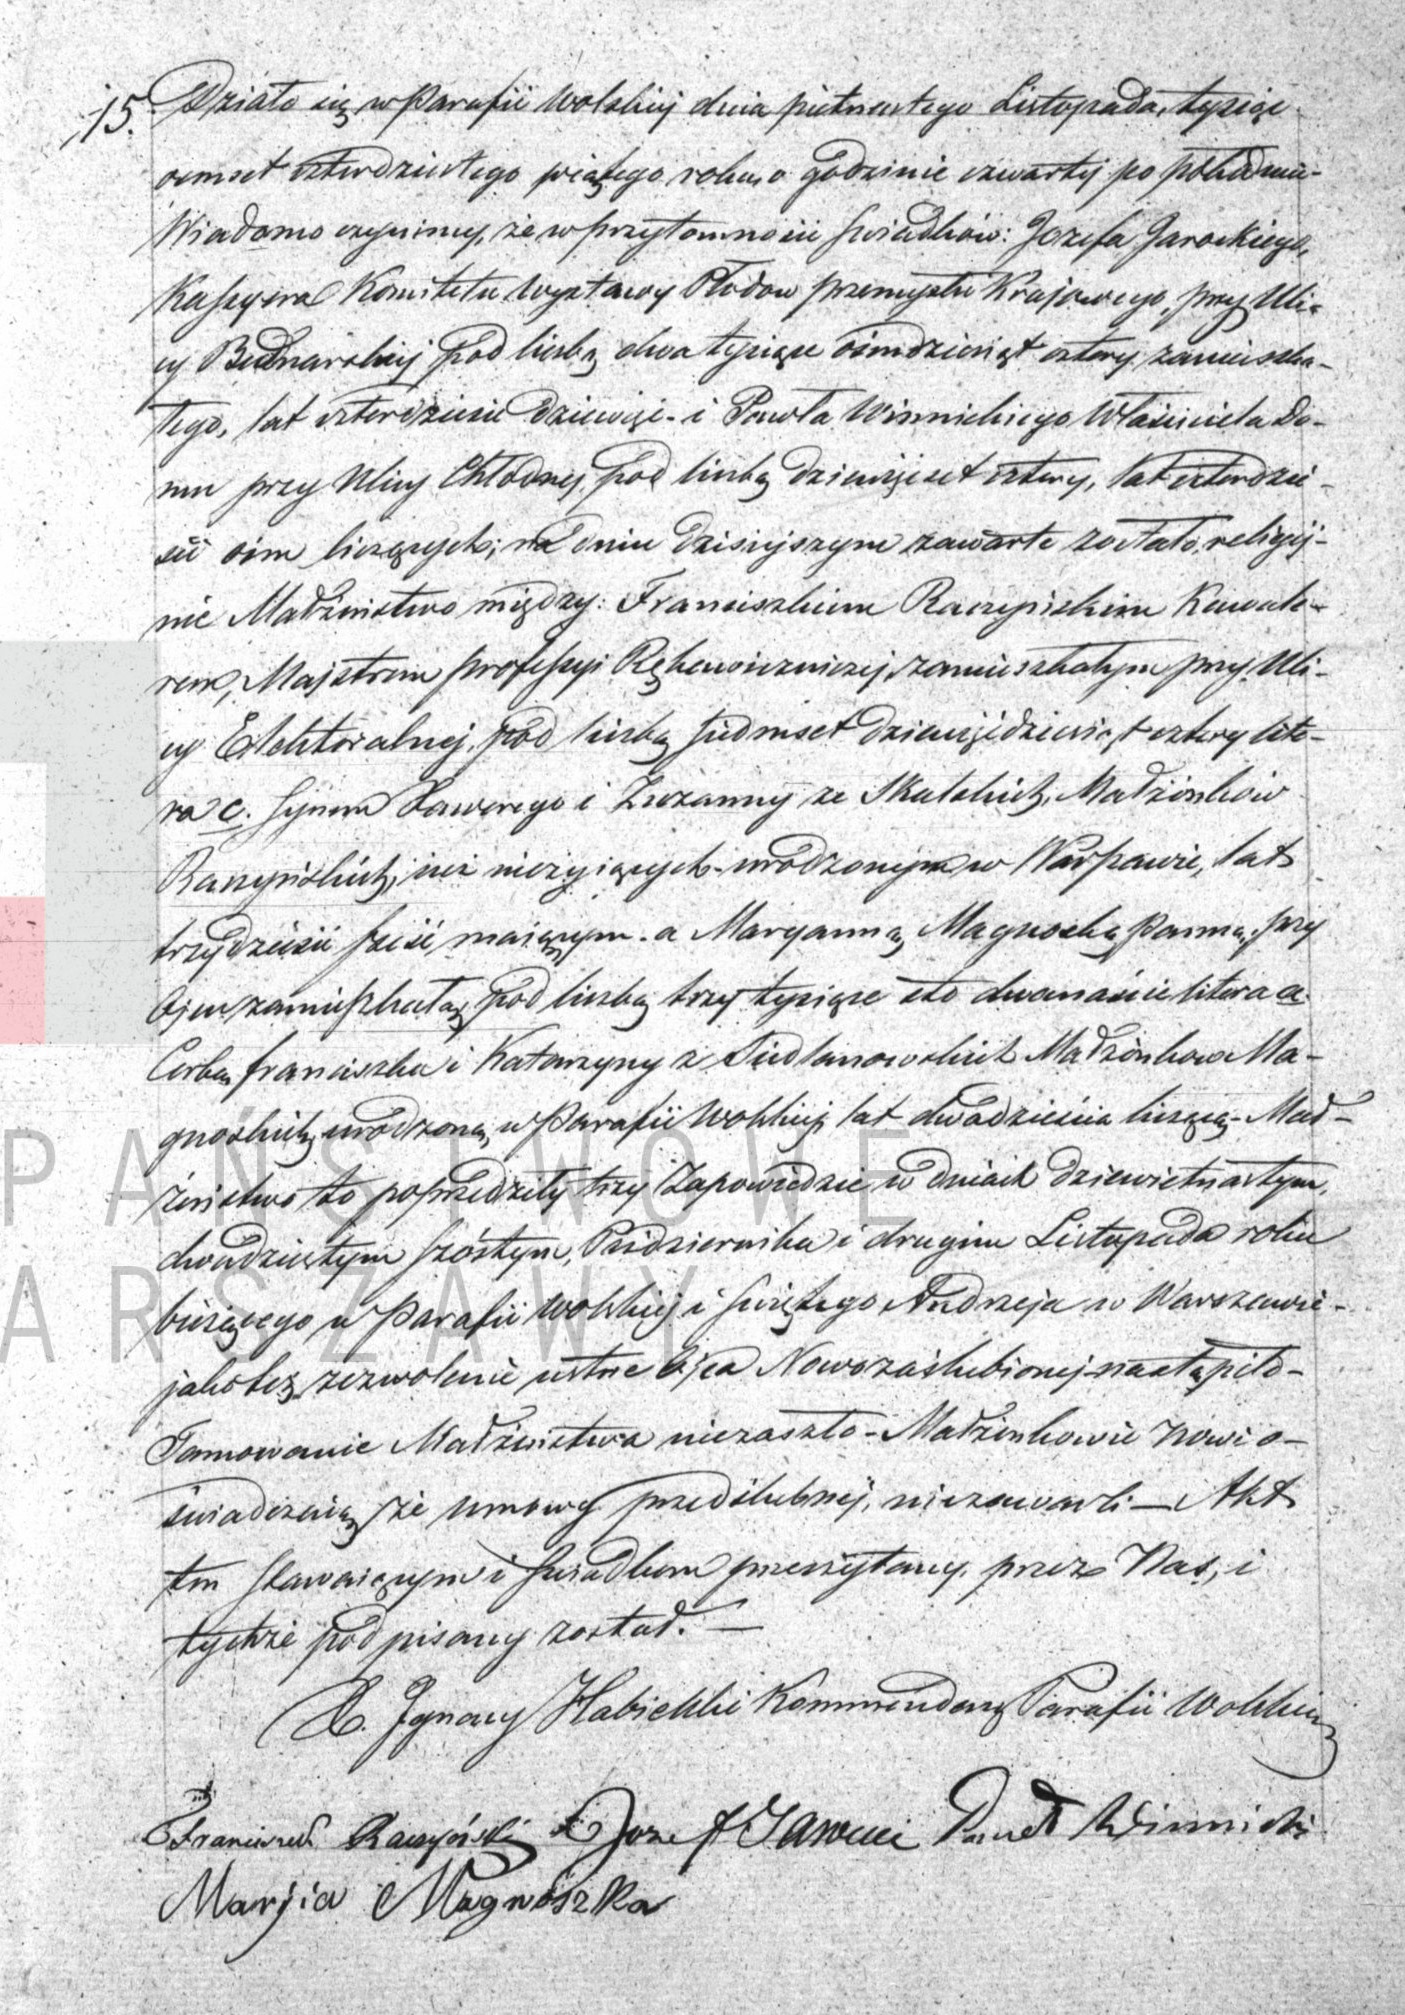 15. Działo się w Parafii Wolskiej dnia piętnastego Listopada, tysiąc
ośmset czterdziestego piątego roku, o godzinie czwartej po południu-
Wiadomo czynimy, że w przytomności Świadków: Jozefa Jarockiego,
Kassyera Komitetu Wystawy Płodów przemysłu Krajowego, przy Uli-
cy Bednarskiej pod liczbą dwa tysiące ośmdziesiąt cztery zamieszka-
łego, lat czterdzieści dziewięć - i Pawła Winnickiego Właściciela Do-
mu przy Ulicy Chłodnej, pod liczbą dziewięćset cztery, lat czterdzie-
ści ośm liczących; na dniu dzisiejszym zawarte zostało religij-
nie Małżeństwo między: Franciszkiem Raczyńskim Kawale-
rem, Majstrem professyi Rękawiczniczej, zamieszkałym przy Uli-
cy Elektoralnej, pod liczbą siedmset dziewięćdziesiąt cztery lite-
ra c. synem Xawerego i Zuzanny ze Skalskich, Małżonków
Raczyńskich, już nieżyjących - urodzonym w Warszawie, lat
trzydzieści sześć maiącym - a Maryanną Magnoską Panną, przy
Ojcu zamieszkałą, pod liczbą trzy tysiące sto dwanaście litera a.
Córką Franciszka i Katarzyny z Małżonków Ma-
gnoskich, urodzoną w Parafii Wolskiej, lat dwadzieścia liczącą - Mał-
żeństwo to poprzedziły trzy Zapowiedzie w dniach dziewiętnastym,
dwudziestym szóstym, Października i drugim Listopada roku
bieżącego w Parafii Wolskiej i Świętego Andrzeja w Warszawie -
jako też zezwolenie ustne Ojca Nowozaślubionej nastąpiło -
Tamowanie Małżeństwa niezaszło - Małżonkowie Nowi o-
świadczają, że umowy przedślubnej, niezawarli - Akt
ten stawaiącym i Świadkom przeczytany, przez Nas, i
tychże podpisany został. -
X. Ignacy Habielski Kommendarz Parafii Wolskiej
Franciszek Raczyński Jozef Jarocki Paweł Winnicki
Marjia Magnoszka
PAŃSTWOWE
ARSZAWY